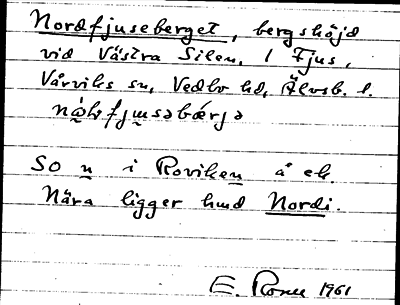 Nordfjuseberget, bergshöjd
vid Västra Silen, 1 Fjus,
Vårviks sn, Vedbo hd, Älvsb. l.
SO n i Roviken å ek.
Nära ligger hmd Nordi.
E. Rosell 1961